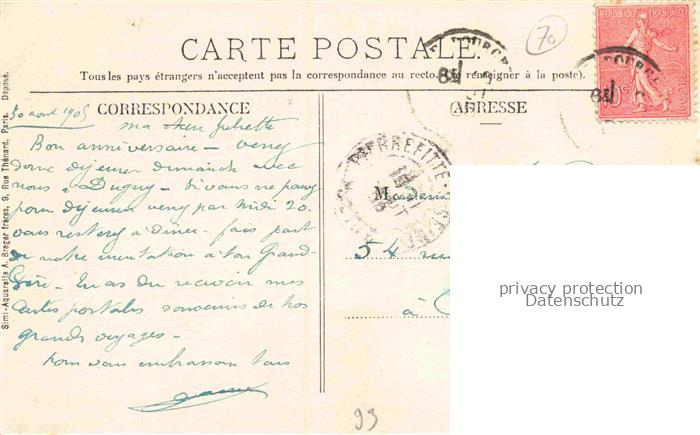 70
CARTE POSTALE
Tous les pays étrangers n'acceptent pas la correspondance au recto. (Se renseigner à la poste).
REPUBLIQUE FRANÇAISE
10c
POSTES
CORRESPONDANCE
ADRESSE
30 aout 1905
ma chere Juliette
Bon anniversaire - venez
donc déjeuner dimanche avec
nous à Dugny - Si vous ne pouvez
pour déjeuner venez par midi 20
vous resterez à diner - fais part
de notre invitation à ton Grand-
Père - tu as du recevoir mes
cartes postales souvenirs de nos
grands voyages -
nous vous embrassons tous
PIERREFITTE
M
54 rue
à
privacy protection
Datenschutz
93
Simi-Aquarelle A. Breger frères, 9, Rue Thénard, Paris. Déposé.